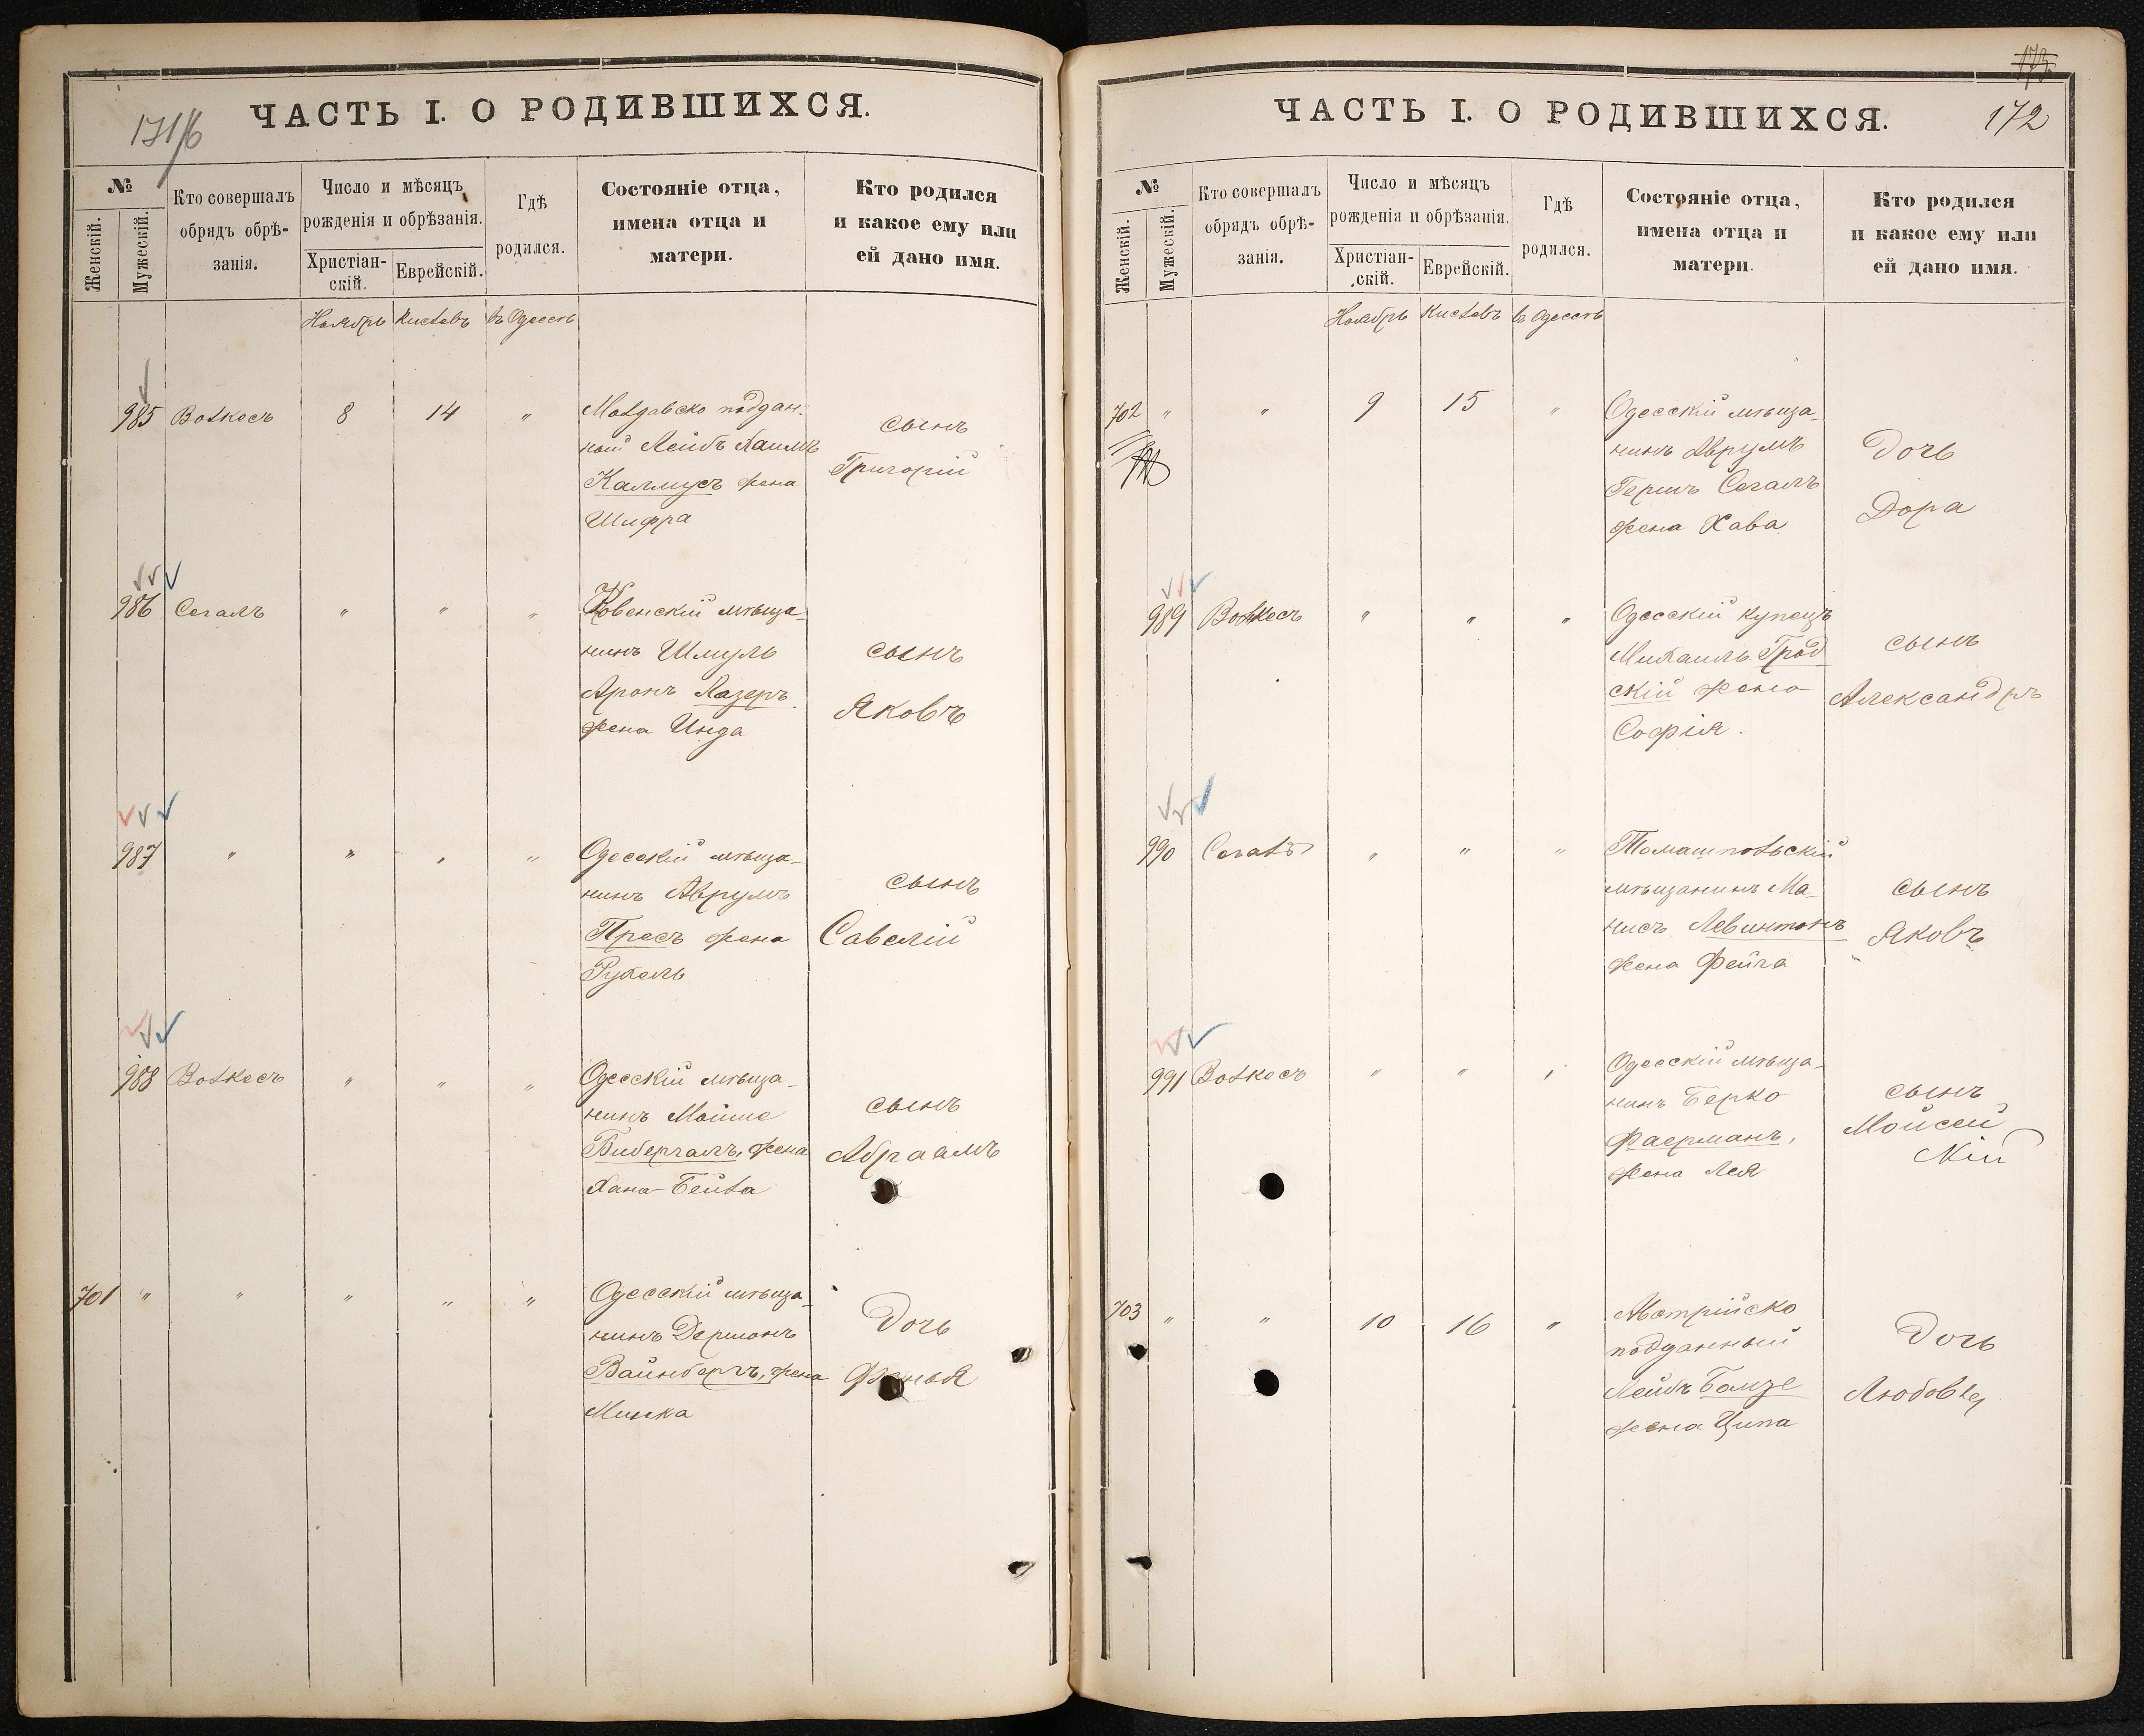 171/б
ЧАСТЬ I. О РОДИВШИХСЯ.
№
Женскій.
Мужескій.
Кто совершалъ
обрядъ обрѣ-
занія.
Число и мѣсяцъ
рожденія и обрѣзанія.
Христіан-
скій.
Еврейскій.
Гдѣ
родился.
Состояніе отца,
имена отца и
матери.
Кто родился
и какое ему или
ей дано имя.
Ноябрь Кислевъ въ Одессѣ
985 Волкесъ 8 14 " Молдавско поддан-
ный Лейбъ Хаимъ
Каллмусъ жена
Шифра
сынъ
Григорій
986 Сегалъ " " " Ковенскій мѣща-
нинъ Шмуль
Аронъ Лазеръ
жена Инда
сынъ
Яковъ
987 " " " " Одесскій мѣща-
нинъ Аврумъ
Пресъ жена
Рухель
сынъ
Савелій
988 Волкесъ " " " Одесскій мѣща-
нинъ Мойше
Бибергалъ, жена
Хана-Бейла
сынъ
Абраамъ
701 " " " " " Одесскій мѣща-
нинъ Гершонъ
Вайнбергъ, жена
Минка
Дочь
173
172
ЧАСТЬ I. О РОДИВШИХСЯ.
№
Женскій.
Мужескій.
Кто совершалъ
обрядъ обрѣ-
занія.
Число и мѣсяцъ
рожденія и обрѣзанія.
Христіан-
скій.
Еврейскій.
Гдѣ
родился.
Состояніе отца,
имена отца и
матери.
Кто родился
и какое ему или
ей дано имя.
Ноябрь Кислевъ въ Одессѣ
702 " " 9 15 " Одесскій мѣща-
нинъ Аврумъ
Гершъ Сегалъ
жена Хава
Дочь
Дора
989 Волкесъ " " " Одесскій купецъ
Михаилъ Грод
скій жена
Софія.
сынъ
Александръ
990 Сегалъ " " " Томашпольскій
мѣщанинъ Ма-
нисъ Левинтонъ
жена Фейга
сынъ
Яковъ
991 Волкесъ " " " Одесскій мѣща-
нинъ Берко
Фаерманъ,
жена Лея
сынъ
Мойсей
703 " " 10 16 " Австрійско
подданный
Лейбъ Бомзе
жена Ципа
Дочь
Любовь